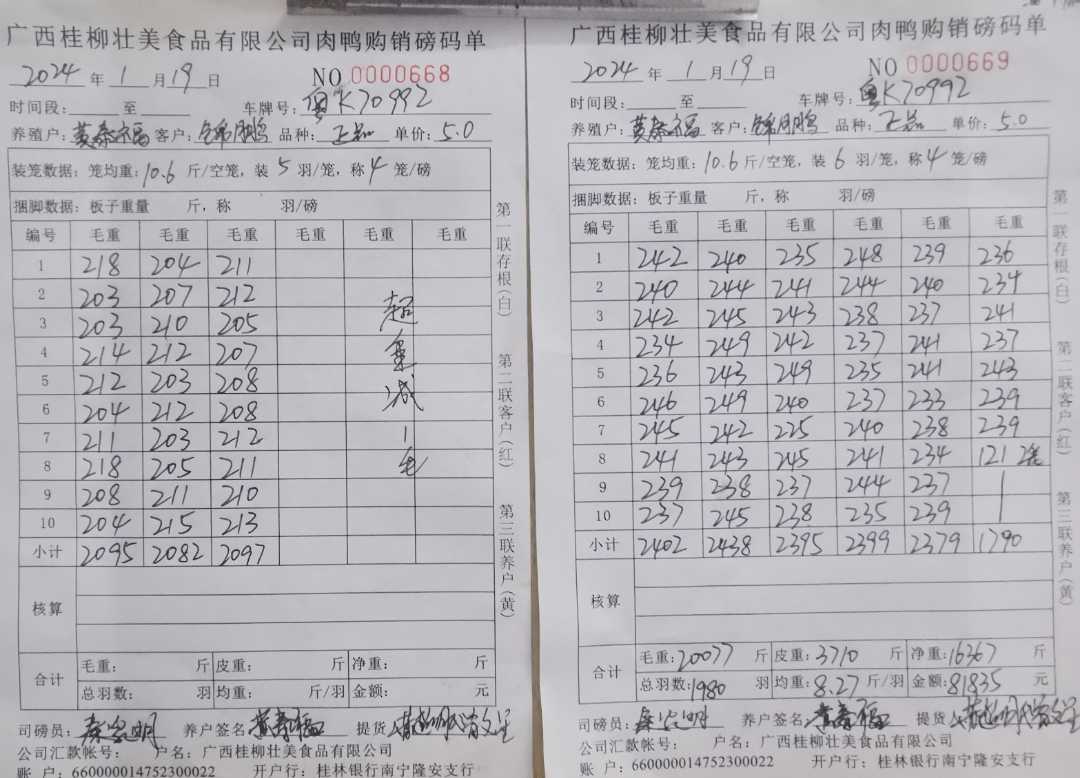 广西桂柳壮美食品有限公司肉鸭购销磅码单
2024 年 1 月 19 日 NO 0000668
时间段: 至 车牌号: 粤K70992
养殖户: 黄春福 客户: 品种: 正品 单价: 5.0
装笼数据: 笼均重: 10.6 斤/空笼, 装 5 羽/笼, 称 4 笼/磅
捆脚数据: 板子重量 斤, 称 羽/磅
编号 毛重 毛重 毛重 毛重 毛重 毛重
1 218 204 211
2 203 207 212
3 203 210 205
4 214 212 207
5 212 203 208
6 204 212 208
7 211 203 212
8 218 205 211
9 208 211 210
10 204 215 213
小计 2095 2082 2097
超重减1毛
核算
合计 毛重: 斤 皮重: 斤 净重: 斤
总羽数: 羽 均重: 斤/羽 金额: 元
司磅员: 养户签名: 黄春福 提货
公司汇款帐号: 户名: 广西桂柳壮美食品有限公司
账户: 660000014752300022 开户行: 桂林银行南宁隆安支行
第一联存根(白) 第二联客户(红) 第三联养户(黄)
广西桂柳壮美食品有限公司肉鸭购销磅码单
2024 年 1 月 19 日 NO 0000669
时间段: 至 车牌号: 粤K70992
养殖户: 黄春福 客户: 品种: 正品 单价: 5.0
装笼数据: 笼均重: 10.6 斤/空笼, 装 6 羽/笼, 称 4 笼/磅
捆脚数据: 板子重量 斤, 称 羽/磅
编号 毛重 毛重 毛重 毛重 毛重 毛重
1 242 240 235 248 239 236
2 240 244 241 244 240 234
3 242 245 243 238 237 241
4 234 249 242 237 241 237
5 236 243 249 235 241 243
6 246 249 240 237 233 239
7 245 242 225 240 238 239
8 241 243 245 241 234 121 2笼
9 239 238 237 244 237
10 237 245 238 235 239
小计 2402 2438 2395 2399 2379 1790
核算
合计 毛重: 20077 斤 皮重: 3710 斤 净重: 16367 斤
总羽数: 1980 羽 均重: 8.27 斤/羽 金额: 81835 元
司磅员: 养户签名: 黄春福 提货
公司汇款帐号: 户名: 广西桂柳壮美食品有限公司
账户: 660000014752300022 开户行: 桂林银行南宁隆安支行
第一联存根(白) 第二联客户(红) 第三联养户(黄)